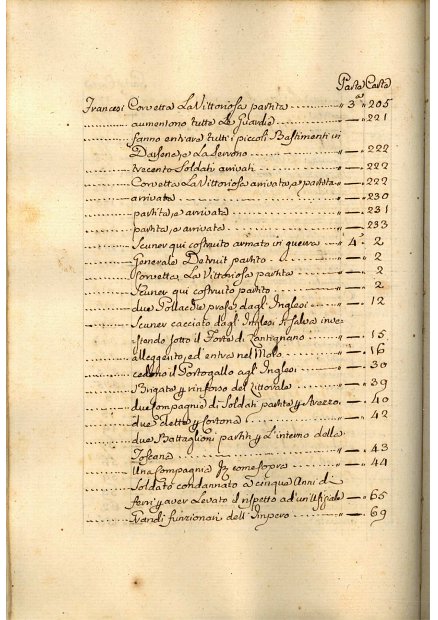 Parte Carte
Francesi Corvetta La Vittoriosa partita " 3a " 205
aumentono tutte Le Guardie " — " 221
fanno entrare tutti i piccoli Bastimenti in
Darsena, e La servono " — " 222
trecento Soldati arrivati " — " 222
Corvetta La Vittoriosa arrivata, e partita " — " 222
arrivata " — " 230
partita, e arrivata " — " 231
partita, e arrivata " — " 233
Scuner qui costruito armato in guerra " 4a " 2
Generale Detruit partito " — " 2
Corvetta La Vittoriosa partita " — " 2
Scuner qui costruito partito " — " 2
due Pollacche prese dagl'Inglesi " — " 12
Scuner cacciato dagl'Inglesi si salva inve-
stendo sotto il Forte di " — " 15
alleggerito, ed entra nel Molo " — " 16
cedono il Portogallo agl'Inglesi " — " 30
Brigate p rinforso del Littorale " — " 39
due compagnie di Soldati partite p Arezzo " — " 40
due dette p Cortona " — " 42
due Battaglioni partiti p L'interno della
Toscana " — " 43
Una compagnia come sopra " — " 44
Soldato condannato a cinque Anni di
ferri p aver Levato il rispetto ad un'uffiziale " — " 65
Grandi funzionari dell'Impero " — " 69